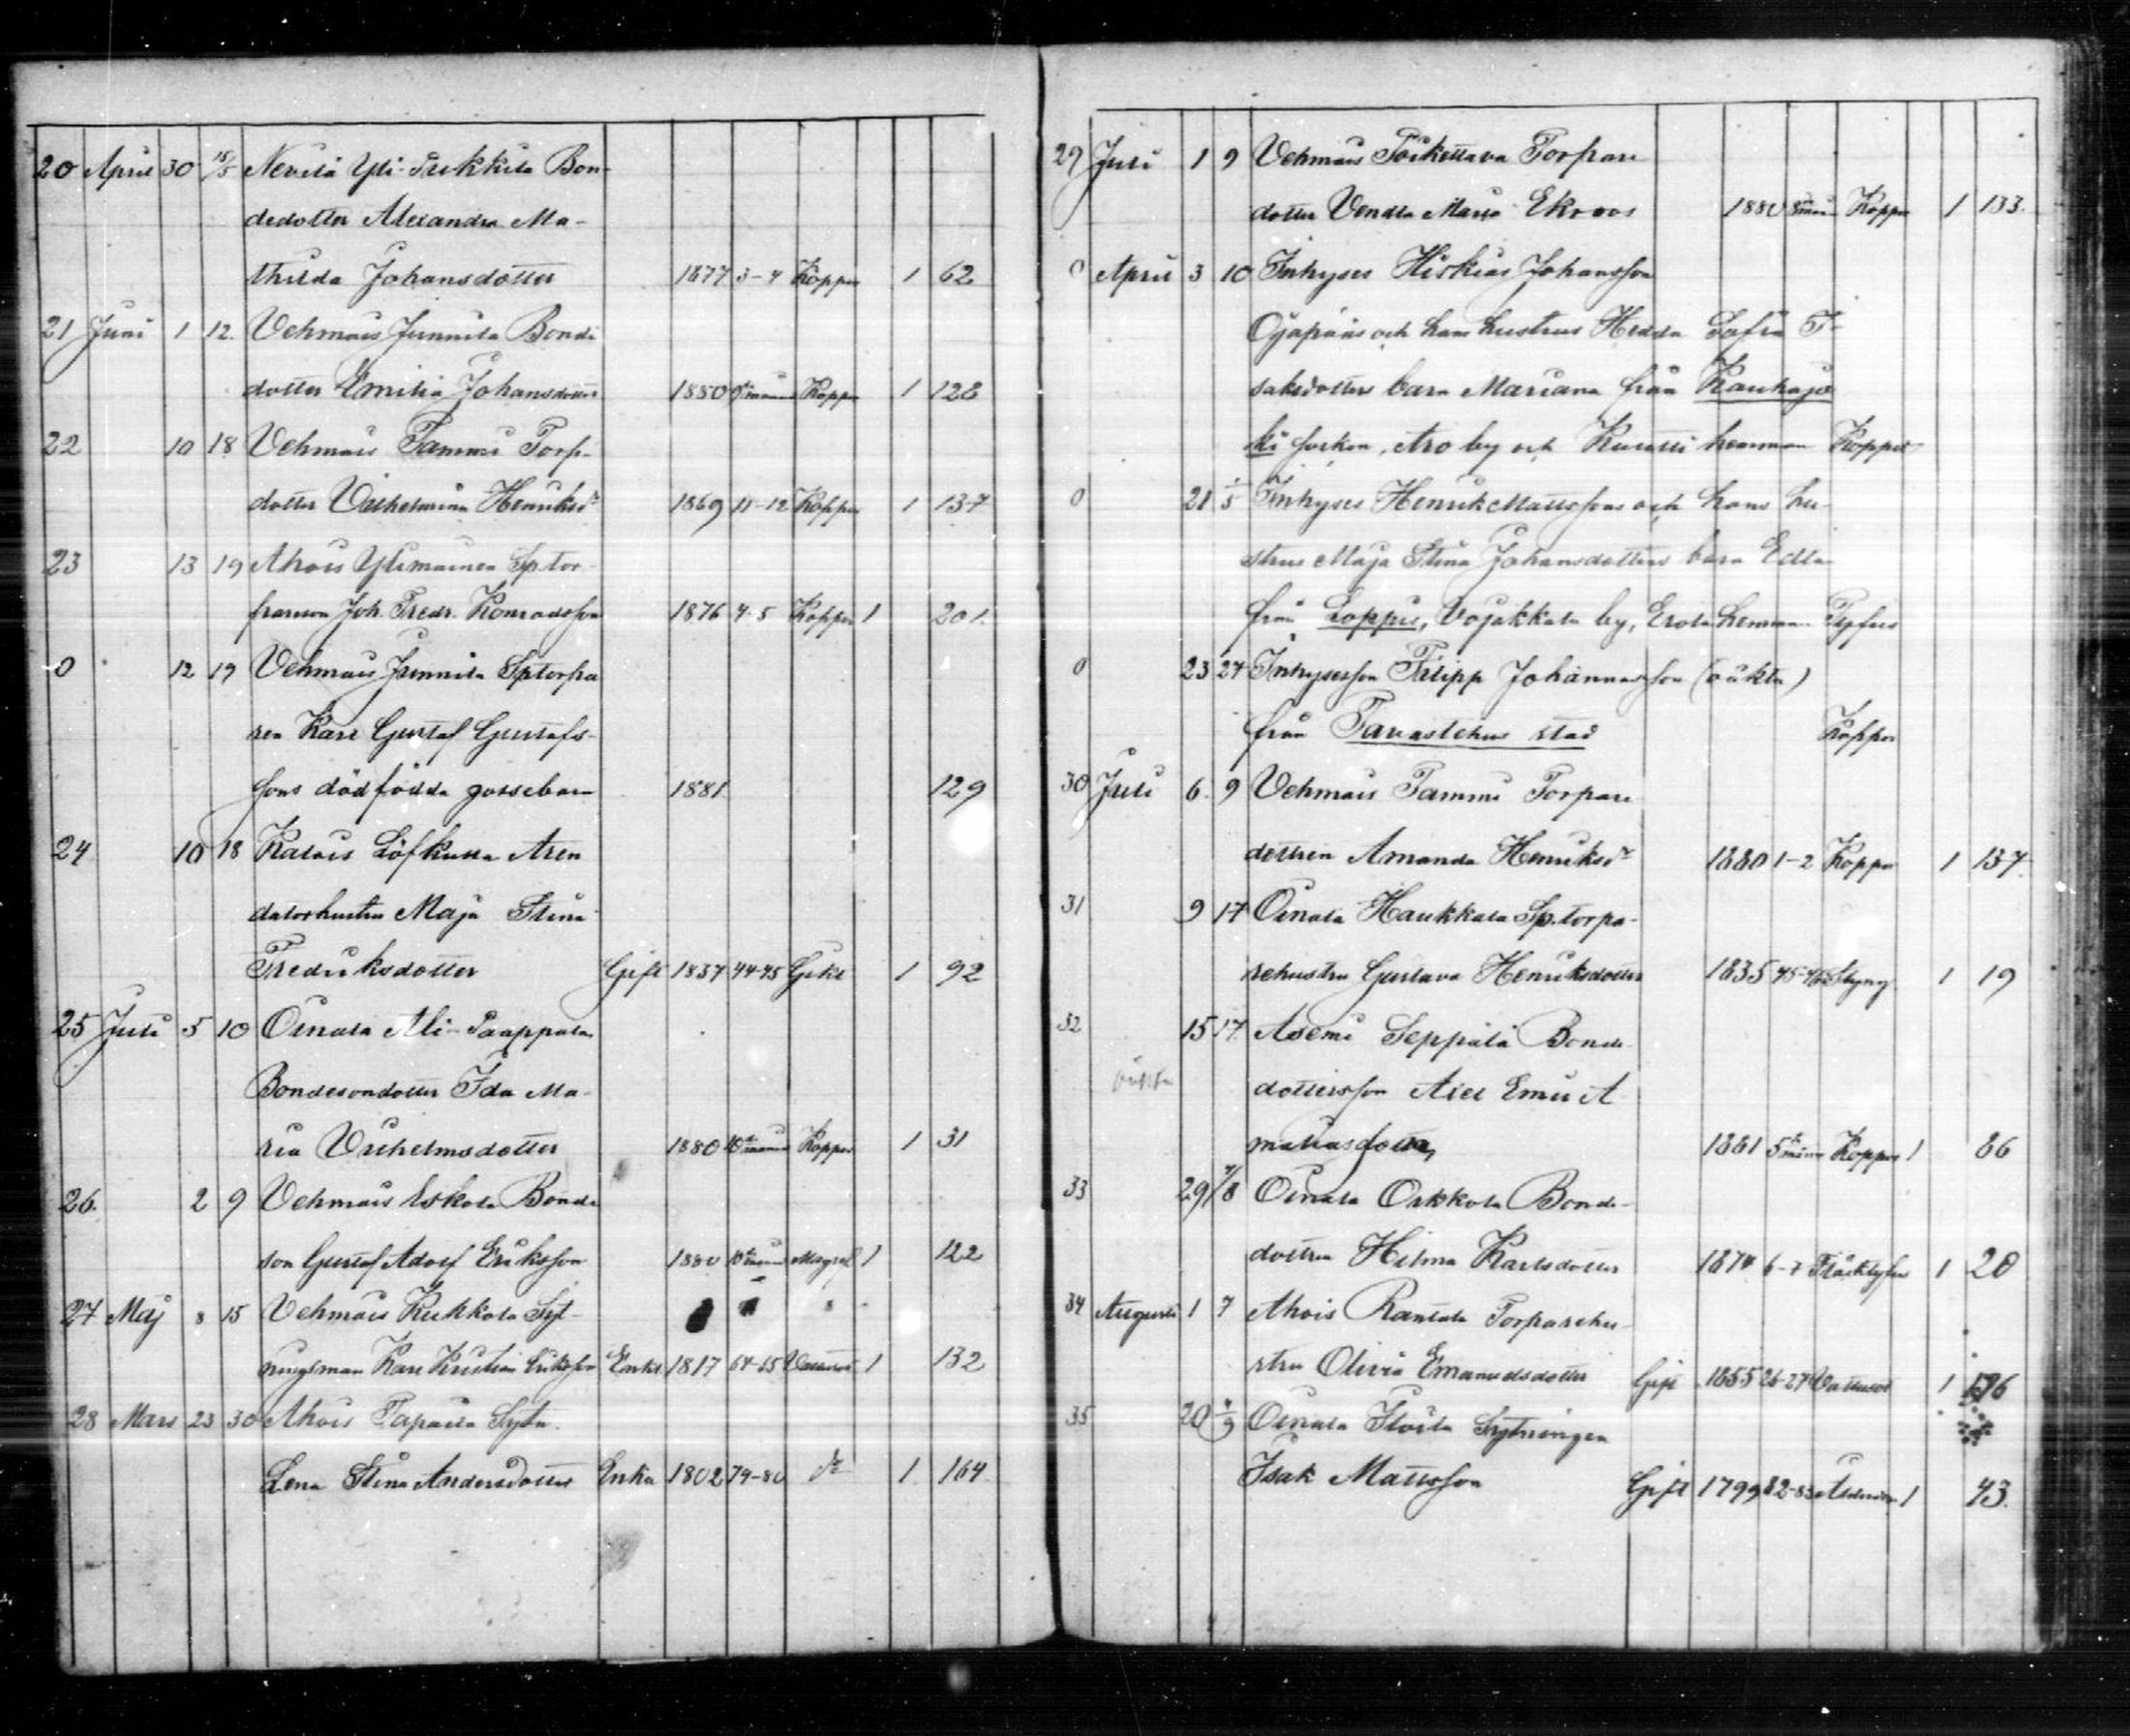 20 April 30 15/5 Nevilä Yli-Pirkkila Bon-
dedotter Alexandra Ma-
thilda Johansdotter 1877 3-4 Koppor 1 62
21 Juni 1 12. Vehmais Junnila Bonde
dotter Emilia Johansdotter 1880 Koppor 1 128
22 10 18 Vehmais Tammi Torp-
dotter Vilhelmina Henriksdr 1869 11-12 Koppor 1 137
23 13 19 Ahois Ylimainen Sptor-
pareson Joh. Fredr. Konradsson 1876 4-5 Koppor 1 201.
0 12 19 Vehmais Junnila Sptorpa
ren Karl Gustaf Gustafs-
sons dödfödda gossebarn 1881 129
24 10 18 Kalois Löfkulla Aren
datorhustru Maja Stina
Fredriksdotter Gift 1837 44-45 Gikt 1 92
25 Juli 5 10 Oinala Ali-Paappala
Bondesondotter Ida Ma-
ria Vilhelmsdotter 1880 Koppor 1 31
26. 2 9 Vehmais Eskola Bonde
son Gustaf Adolf Eriksson 1880 1 122
27 Maj 8 15 Vehmais Kukkola Syt-
ningsman Karl Kristian Eriksson Enkl. 1817 64-65 Vattusot 1 132
28 Mars 23 30 Ahois Papaila Sytn.
Lena Stina Andersdotter Enka 1802 79-80 do 1 164
29 Juli 1 9 Vehmais Torpare
dotter Vendla Maria Ekroos 1880 Koppor 1 133.
0 April 3 10 Inhyses Hiskias Johansson
Ojapääs och hans hustrus Hedda Sofia I-
saksdotters barn Mariana från Kauhajo
ki socken, Aro by och hemman Koppor
0 21 1/5 Inhyses Henrik Mattssons och hans hu-
strus Maja Stina Johansdotters barn Edla
från Loppis, Vojakkala by, Erola hemman Tyfus
0 23 24 Inhyseson Filipp Johannasson (oäkta)
från Tavastehus stad Koppor
30 Juli 6. 9 Vehmais Tammi Torpare
dottren Amanda Henriksdr 1880 1-2 Koppor 1 137.
31 9 17 Oinala Haukkala Sp.torpa-
rehustru Gustava Henriksdotter 1835 45-46 Styng 1 19
32 15 17 Asemi Seppälä Bonde
oäkta dottersson Axel Emil A
maliasson 1881 Koppor 1 86
33 29 7/8 Oinala Orkkola Bonde-
dottren Hilma Karlsdotter 1874 6-7 Fläcktyfus 1 20
34 Augusti 1 7 Ahois Rantala Torparehu-
stru Olivia Emanuelsdotter Gift 1855 26-27 Vattusot 1 196
35 20 1/9 Oinala Isoila Sytningen
Isak Mattsson Gift 1799 82-83 Ålderdom 1 43.